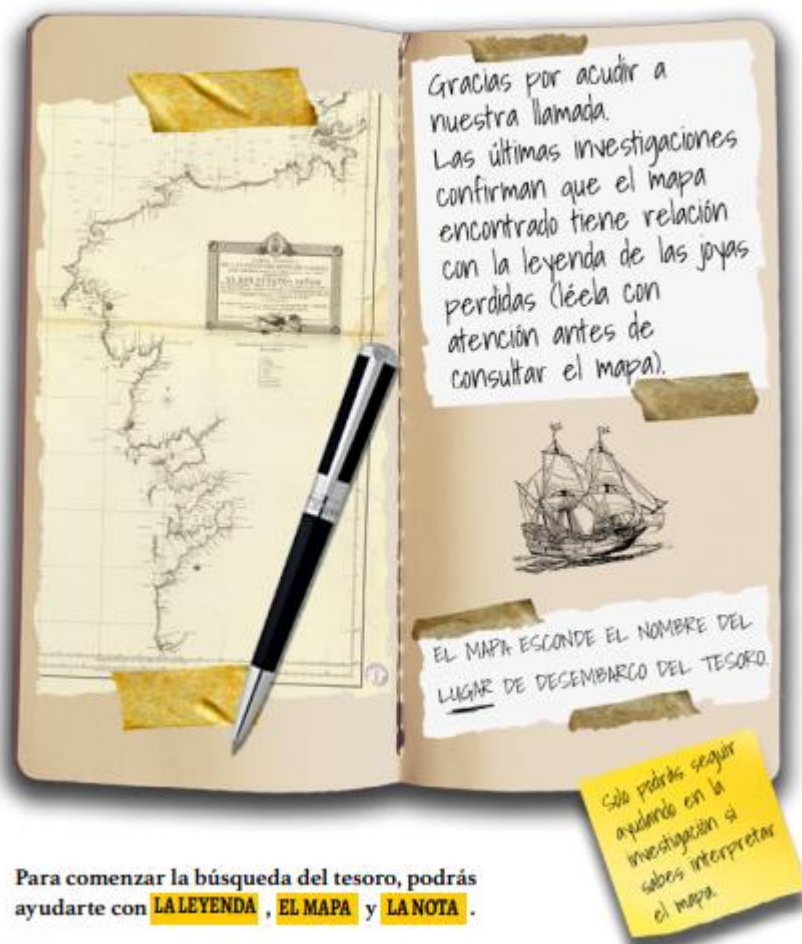 Gracias por acudir a
nuestra llamada.
Las últimas investigaciones
confirman que el mapa
encontrado tiene relación
con la leyenda de las joyas
perdidas (léela con
atención antes de
consultar el mapa).
EL MAPA ESCONDE EL NOMBRE DEL
LUGAR DE DESEMBARCO DEL TESORO.
Solo podrás seguir
ayudando en la
investigación si
sabes interpretar
el mapa.
Para comenzar la búsqueda del tesoro, podrás
ayudarte con LA LEYENDA , EL MAPA y LA NOTA .